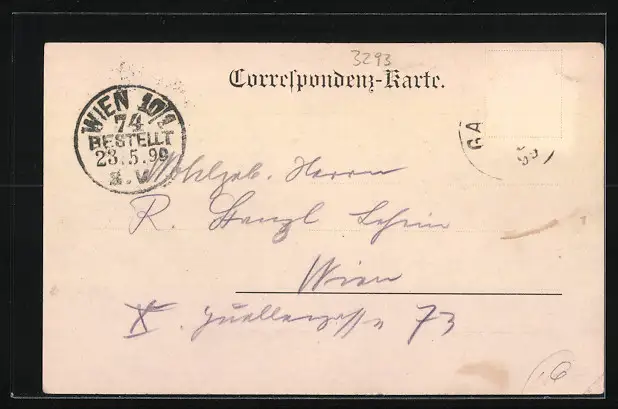 3293
Correspondenz-Karte.
WIEN 10/1
74
BESTELLT
23.5.99
GA
99
Wohlgeb. Herrn
R. Stanzl
Wien
X. Quellengasse 73
6